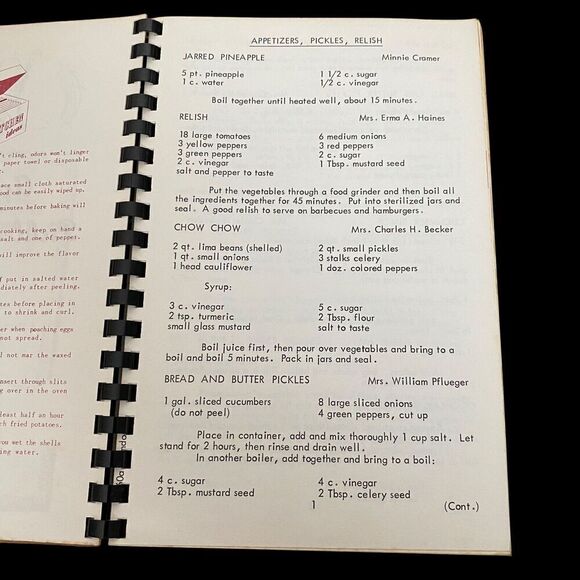 ideas
't cling, odors won't linger
paper towel or disposable
ace small cloth saturated
ood can be easily wiped up.
minutes before baking will
cooking, keep on hand a
salt and one of pepper.
will improve the flavor
f put in salted water
diately after peeling.
tes before placing in
er when poaching eggs
not spread.
l not mar the waxed
nsert through slits
ng over in the oven
least half an hour
ch fried potatoes.
you wet the shells
ing water.
APPETIZERS, PICKLES, RELISH
JARRED PINEAPPLE Minnie Cramer
5 pt. pineapple 1 1/2 c. sugar
1 c. water 1/2 c. vinegar
Boil together until heated well, about 15 minutes.
RELISH Mrs. Erma A. Haines
18 large tomatoes 6 medium onions
3 yellow peppers 3 red peppers
3 green peppers 2 c. sugar
2 c. vinegar 1 Tbsp. mustard seed
salt and pepper to taste
Put the vegetables through a food grinder and then boil all
the ingredients together for 45 minutes. Put into sterilized jars and
seal. A good relish to serve on barbecues and hamburgers.
CHOW CHOW Mrs. Charles H. Becker
2 qt. lima beans (shelled) 2 qt. small pickles
1 qt. small onions 3 stalks celery
1 head cauliflower 1 doz. colored peppers
Syrup:
3 c. vinegar 5 c. sugar
2 tsp. turmeric 2 Tbsp. flour
small glass mustard salt to taste
Boil juice first, then pour over vegetables and bring to a
boil and boil 5 minutes. Pack in jars and seal.
BREAD AND BUTTER PICKLES Mrs. William Pflueger
1 gal. sliced cucumbers 8 large sliced onions
(do not peel) 4 green peppers, cut up
Place in container, add and mix thoroughly 1 cup salt. Let
stand for 2 hours, then rinse and drain well.
In another boiler, add together and bring to a boil:
4 c. sugar 4 c. vinegar
2 Tbsp. mustard seed 2 Tbsp. celery seed
1 (Cont.)